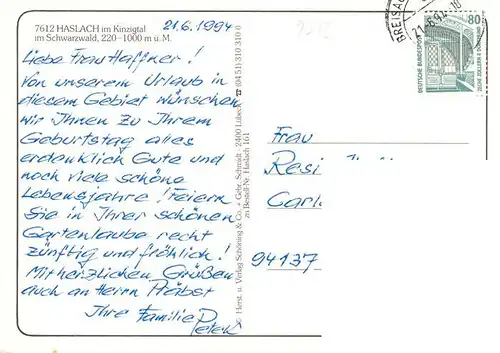 7612 HASLACH im Kinzigtal
im Schwarzwald, 220-1000 m ü. M.
21.6.1994
Liebe Frau Haffner!
Von unserem Urlaub in
diesem Gebiet wünschen
wir Ihnen zu Ihrem
Geburtstag alles
erdenklich Gute und
noch viele schöne
Lebensjahre! Feiern
Sie in Ihrer schönen
Gartenlaube recht
zünftig und fröhlich!
Mit herzlichen Grüßen
auch an Herrn Probst
Ihre Familie
Herst. u. Verlag Schöning & Co. + Gebr. Schmidt · 2400 Lübeck ☎ (0451) 310310
zu Bestell-Nr. Haslach 161
BREISA
21.6.94-18
80
DEUTSCHE BUNDESPOST
ZECHE ZOLLERN II DORTMUND
Frau
Resi
Carl
94137